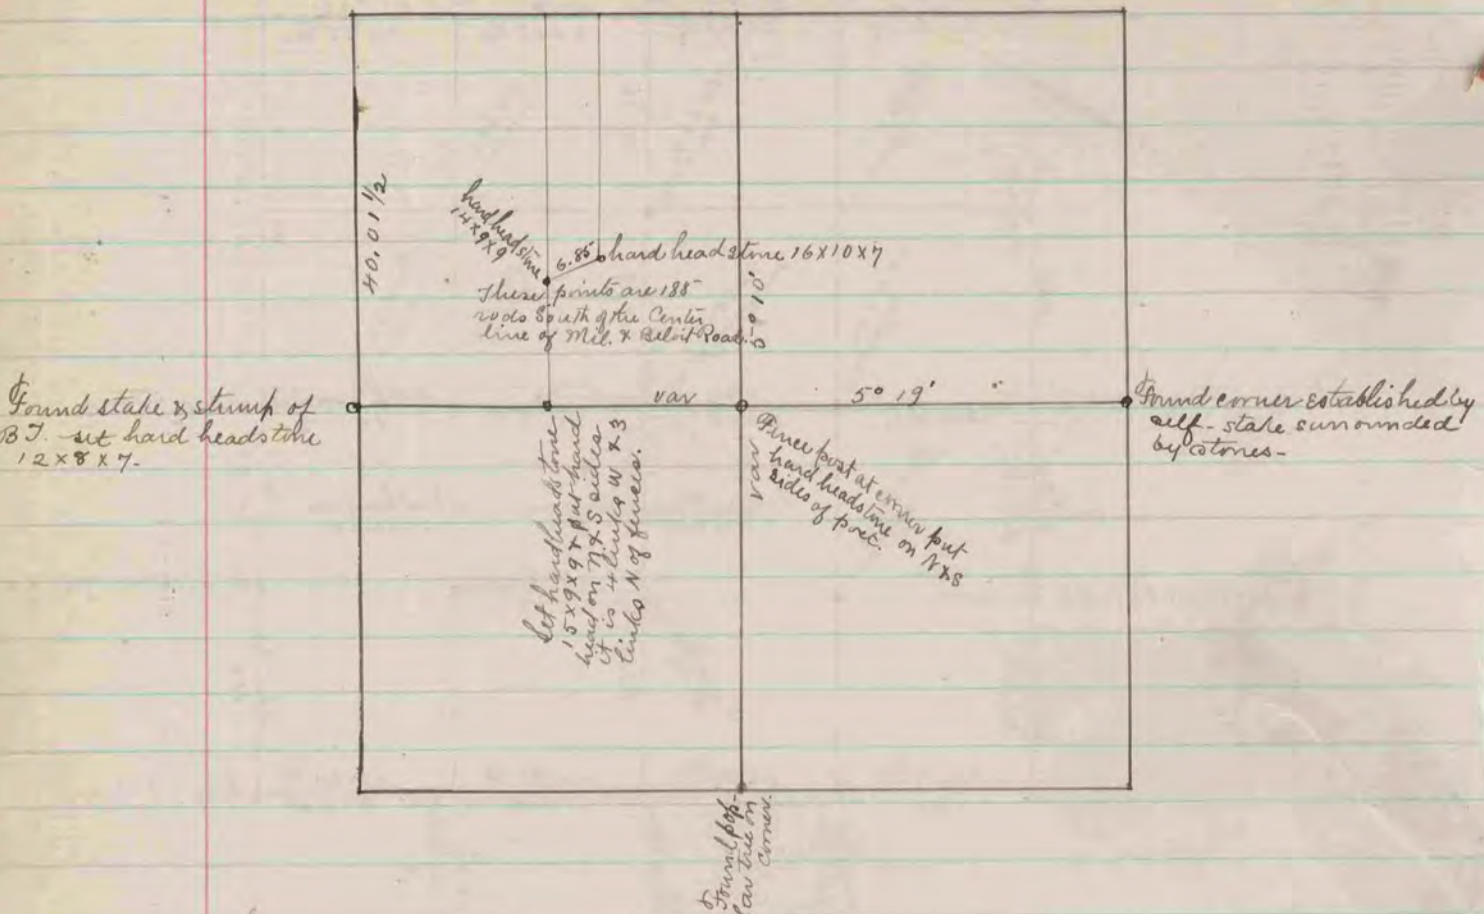 40.01 1/2
hard headstone
14x9x9
6.85
hard headstone 16x10x7
These points are 188
rods South of the Center
line of Mil. & Beloit Road.
5° 10'
var
Found stake & stump of
B T. set hard headstone
12x8x7.
var
5° 19'
Found corner established by
self - stake surrounded
by stones -
Set hard headstone
15x9x9 & put hard
head on N. & S sides
it is 4 links W & 3
links N of fences.
Fence post at corner put
hard headstone on N & S
sides of post.
Found pop-
lar tree on
corner.